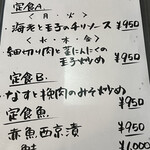 定食A
〈月・火〉
・海老と玉子のチリソース ¥950
〈水・木・金〉
・細切り肉と茎にんにくの
玉子炒め ¥950
定食B.
・なすと挽肉のみそ炒め
¥950
定食魚.
・赤魚西京漬 ¥950
¥1,000